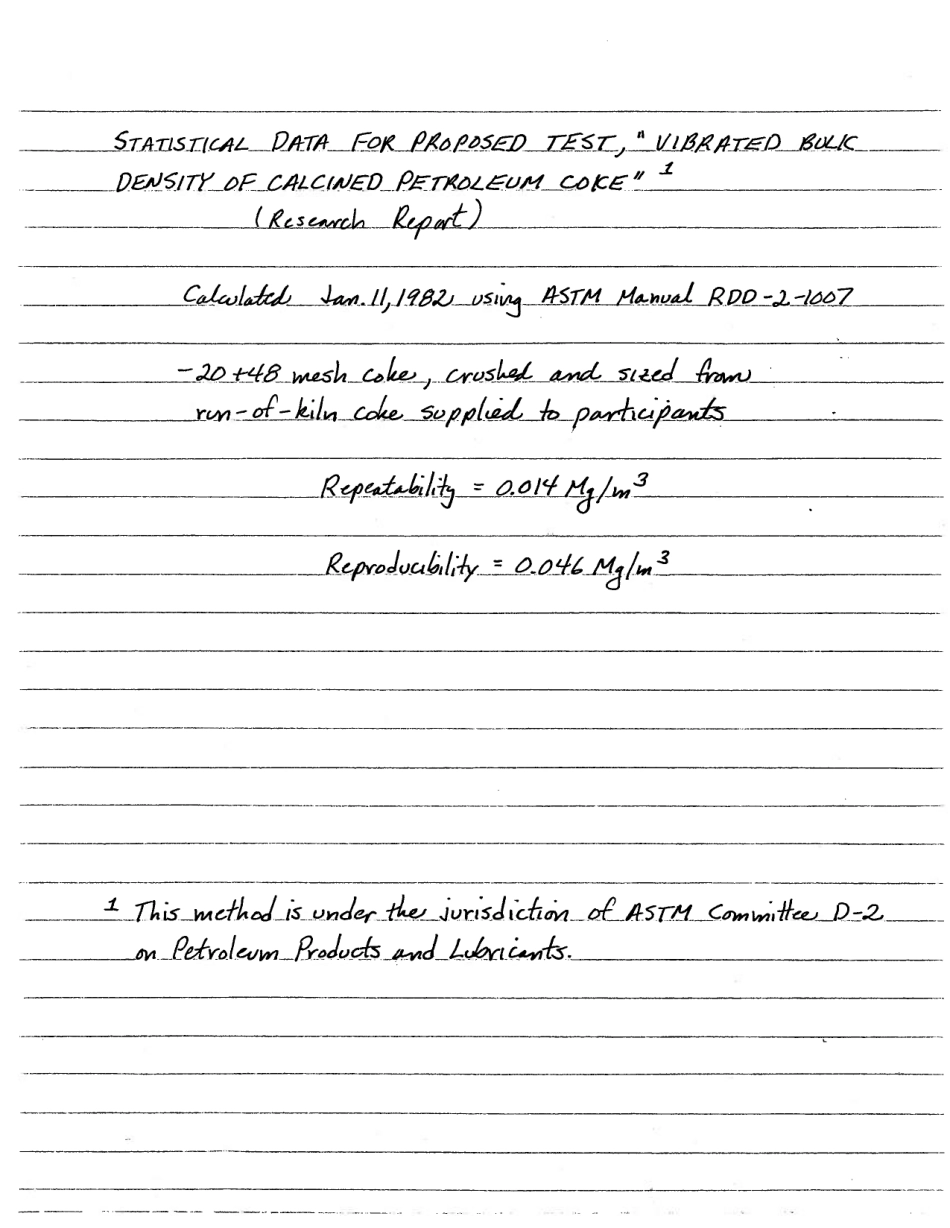 STATISTICAL DATA FOR PROPOSED TEST, "VIBRATED BULK
DENSITY OF CALCINED PETROLEUM COKE" 1
(Research Report)
Calculated Jan. 11, 1982 using ASTM Manual RDD-2-1007
-20 +48 mesh coke, crushed and sized from
run-of-kiln coke supplied to participants
Repeatability = 0.014 Mg/m³
Reproducibility = 0.046 Mg/m³
1 This method is under the jurisdiction of ASTM Committee D-2
on Petroleum Products and Lubricants.